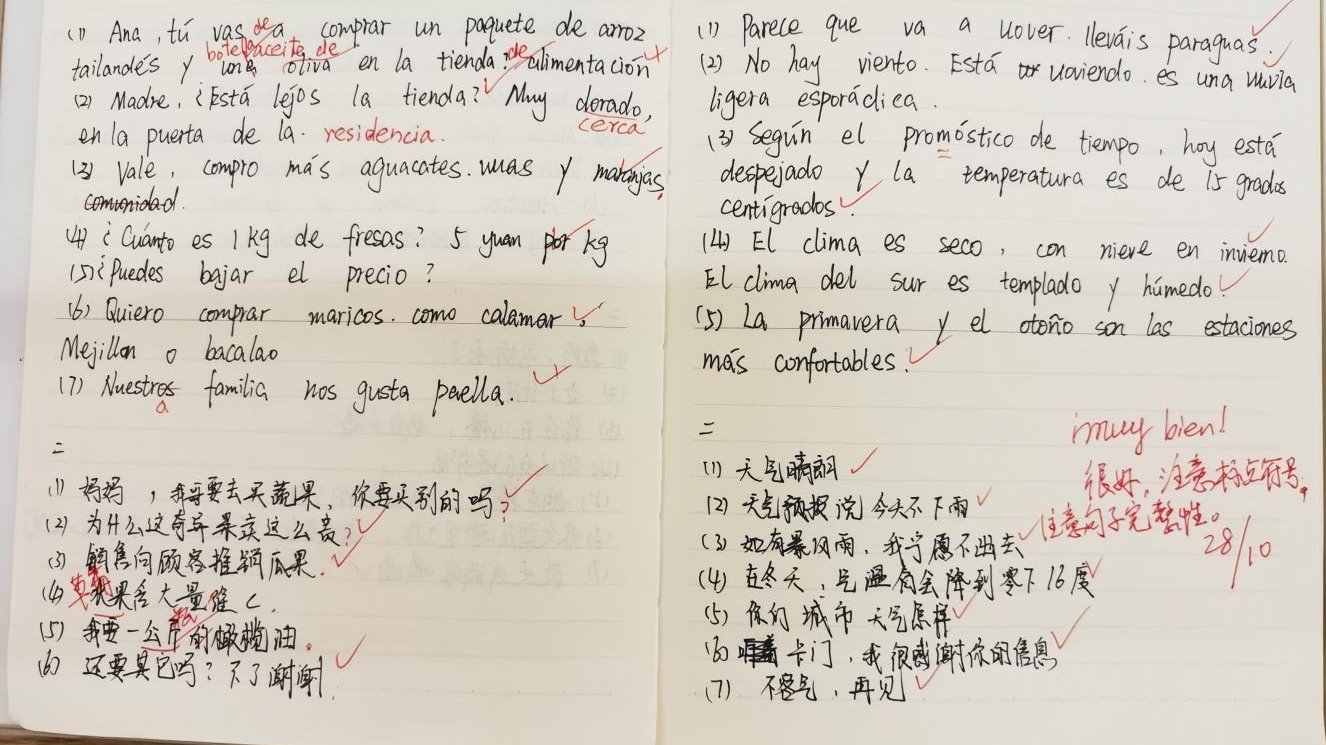 (1) Ana, tú vas de a comprar un paquete de arroz
tailandés y botella aceite de oliva en la tienda de alimentación
(2) Madre, ¿Está lejos la tienda? Muy dorado,
cerca
en la puerta de la residencia.
(3) Vale, compro más aguacates. uvas y naranjas,
comunidad.
(4) ¿Cuánto es 1 kg de fresas? 5 yuan por kg
(5) ¿Puedes bajar el precio?
(6) Quiero comprar maricos. como calamar,
Mejillon o bacalao
(7) Nuestros familia nos gusta paella.
a
二
(1) 妈妈,我哥要去买蔬果,你要买别的吗?
(2) 为什么这奇异果卖这么贵?
(3) 销售向顾客推销瓜果.
(4) 草莓果含大量维C.
(5) 我要一公斤的橄榄油。
(6) 还要其它吗?不了谢谢.
(1) Parece que va a llover. lleváis paraguas.
(2) No hay viento. Está lloviendo. es una lluvia
ligera esporádica.
(3) Según el promóstico de tiempo, hoy está
despejado y la temperatura es de 15 grados
centígrados.
(4) El clima es seco, con nieve en invierno.
El clima del sur es templado y húmedo.
(5) La primavera y el otoño son las estaciones
más confortables.
二
¡muy bien!
很好,注意标点符号,
注意句子完整性。
28/10
(1) 天气晴朗
(2) 天气预报说今天不下雨
(3) 如有暴风雨,我宁愿不出去
(4) 在冬天,气温会降到零下16度
(5) 你们城市天气怎样
(6) 卡门,我很感谢你的信息
(7) 不客气,再见